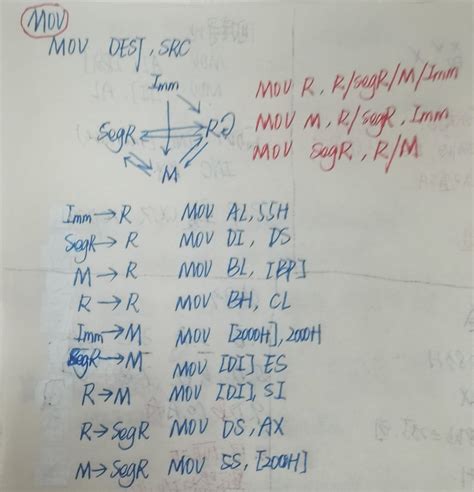 MOV
MOV DEST, SRC
Imm
SegR R
M
MOV R, R/SegR/M/Imm
MOV M, R/SegR, Imm
MOV SegR, R/M
Imm→R MOV AL, 55H
SegR→R MOV DI, DS
M→R MOV BL, [BP]
R→R MOV BH, CL
Imm→M MOV [2000H], 2000H
SegR→M MOV [DI] ES
R→M MOV [DI], SI
R→SegR MOV DS, AX
M→SegR MOV SS, [200H]